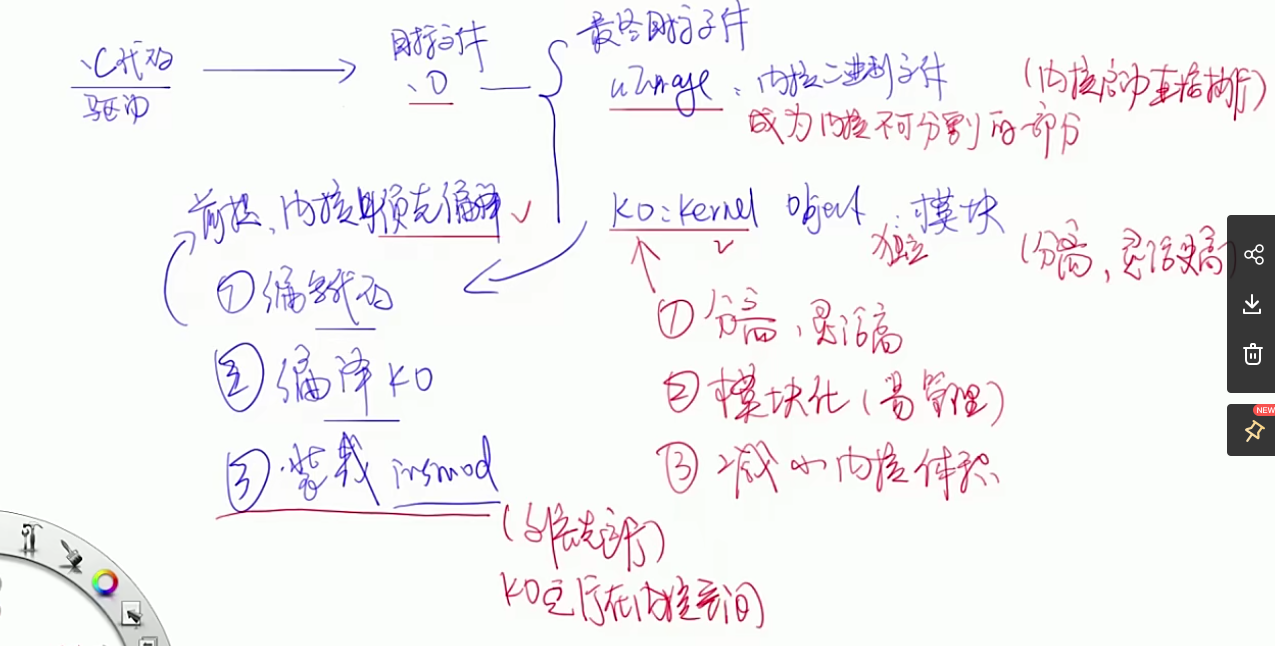 .C代码
驱动
目标文件
.O
最终目标文件
uImage：内核二进制文件
(内核启动直接执行)
成为内核不可分割的部分
前提、内核要预先编译
KO：kernel object：模块
独立
(分离，灵活更高)
① 编写代码
② 编译 KO
③ 装载 insmod
① 分离，灵活高
② 模块化(易管理)
③ 减小内核体积
KO运行在内核空间)
NEW